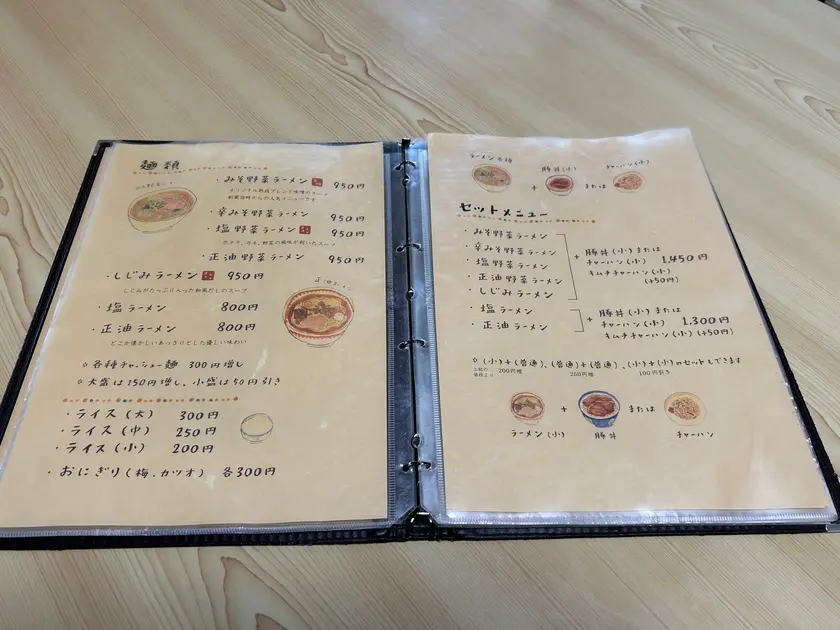 麺類
・みそ野菜ラーメン 950円
オリジナル熟成ブレンド味噌のスープ
創業当時からの人気メニューです
・辛みそ野菜ラーメン 950円
・塩野菜ラーメン 950円
・正油野菜ラーメン 950円
・しじみラーメン 950円
しじみがたっぷり入った和風だしのスープ
正油ラーメン
・塩ラーメン 800円
・正油ラーメン 800円
どこか懐かしいあっさりとした優しい味わい
※各種チャーシュー麺 300円増し
※大盛は150円増し、小盛は50円引き
・ライス(大) 300円
・ライス(中) 250円
・ライス(小) 200円
・おにぎり(梅、カツオ) 各300円
ラーメン各種
+
豚丼(小)
または
チャーハン(小)
セットメニュー
・みそ野菜ラーメン
・辛みそ野菜ラーメン
・塩野菜ラーメン
・正油野菜ラーメン
・しじみラーメン
+ 豚丼(小)または
チャーハン(小) 1,450円
キムチチャーハン(小)
(+50円)
・塩ラーメン
・正油ラーメン
+ 豚丼(小)または
チャーハン(小) 1,300円
キムチチャーハン(小)(+50円)
※(小)+(普通)、(普通)+(普通)、(小)+(小)のセットもできます
上記の
値段より 200円増 250円増 100円引き
+
または
ラーメン(小) 豚丼 チャーハン